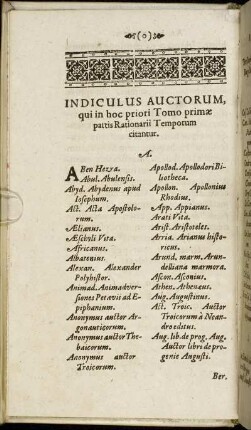 (o)
INDICULUS AUCTORUM,
qui in hoc priori Tomo primæ
partis Rationarii Temporum
citantur.
A.
ABen Hezra.
Abul. Abulensis.
Abyd. Abydenus apud
Iosephum.
Act. Acta Apostolo-
rum.
Ælianus.
Æschyli Vita.
Africanus.
Albatenius.
Alexan. Alexander
Polyhistor.
Animad. Animadver-
siones Petavii ad E-
piphanium.
Anonymus auctor Ar-
gonauticorum.
Anonymus auctor The-
baicorum.
Anonymus auctor
Troicorum.
Apollod. Apollodori Bi-
bliotheca.
Apollon. Apollonius
Rhodius.
App. Appianus.
Arati Vita.
Arist. Aristoteles.
Arria. Arianus histo-
ricus.
Arund. marm. Arun-
delliana marmora.
Ascon. Asconius.
Athen. Athenæus.
Aug. Augustinus.
Act. Troic. Auctor
Troicorum à Nean-
dro editus.
Aug. lib. de prog. Aug.
Auctor libri de pro-
genie Augusti.
Ber.